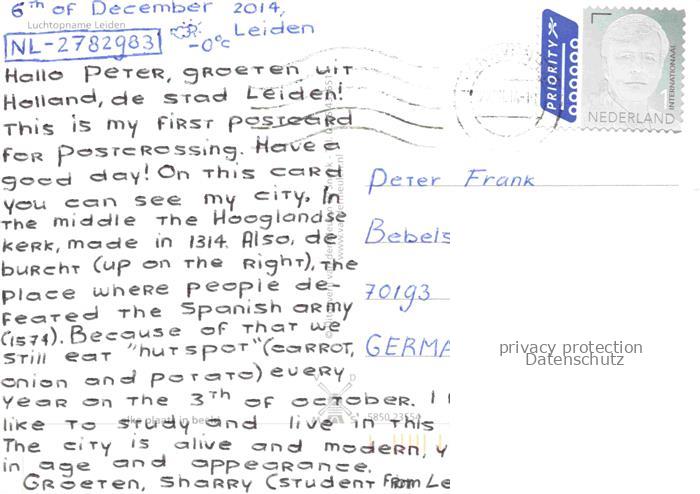 6th of December 2014,
Luchtopname Leiden
Leiden
NL-2782983
-0°c
Hallo Peter, groeten uit
Holland, de stad Leiden!
This is my first postcard
for Postcrossing. Have a
good day! On this card
you can see my city. In
the middle the Hooglandse
kerk, made in 1314. Also, de
burcht (up on the right), the
place where people de-
feated the Spanish army
(1574). Because of that we
still eat "hutspot" (carrot,
onion and potato) every
year on the 3th of october. I
like to study and live in this
The city is alive and modern, y
in age and appearance.
Groeten, Sharry (student from Le
PRIORITY
INTERNATIONAAL
NEDERLAND
Peter Frank
Bebels
70193
GERMA
privacy protection
Datenschutz
5850 23554